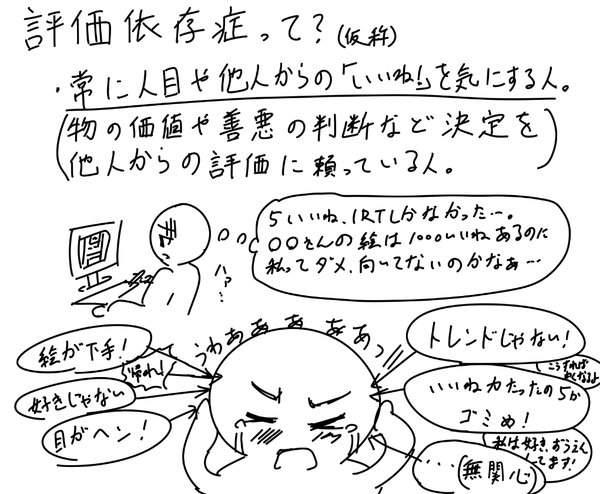 評価依存症って?(仮称)
・常に人目や他人からの「いいね!」を気にする人。
(物の価値や善悪の判断など決定を
他人からの評価に頼っている人。)
5いいね、1RTしかなかった…。
〇〇さんの絵は1000いいねあるのに
私ってダメ、向いてないのかなぁ…
ハァ…
うわあああああっ
絵が下手!
帰れ!
好きじゃない
目がヘン!
トレンドじゃない!
こうすれば
よくなるよ
いいねカたったの5か
ゴミめ!
私は好き、おうえん
してます!
…(無関心)